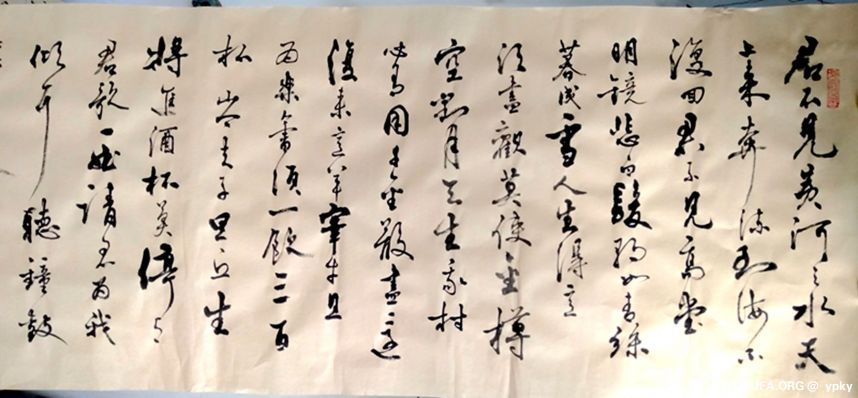 君不見黃河之水天
上来奔流到海不
復回君不見高堂
明鏡悲白髮朝如青絲
暮成雪人生得意
须盡觀莫使金樽
空對月天生我材
必有用千金散盡還
復来烹羊宰牛且
为樂會须一飲三百
杯岑夫子丹丘生
將進酒杯莫停与
君歌一曲請君为我
傾耳聽鐘鼓
UFA.ORG @ ypky